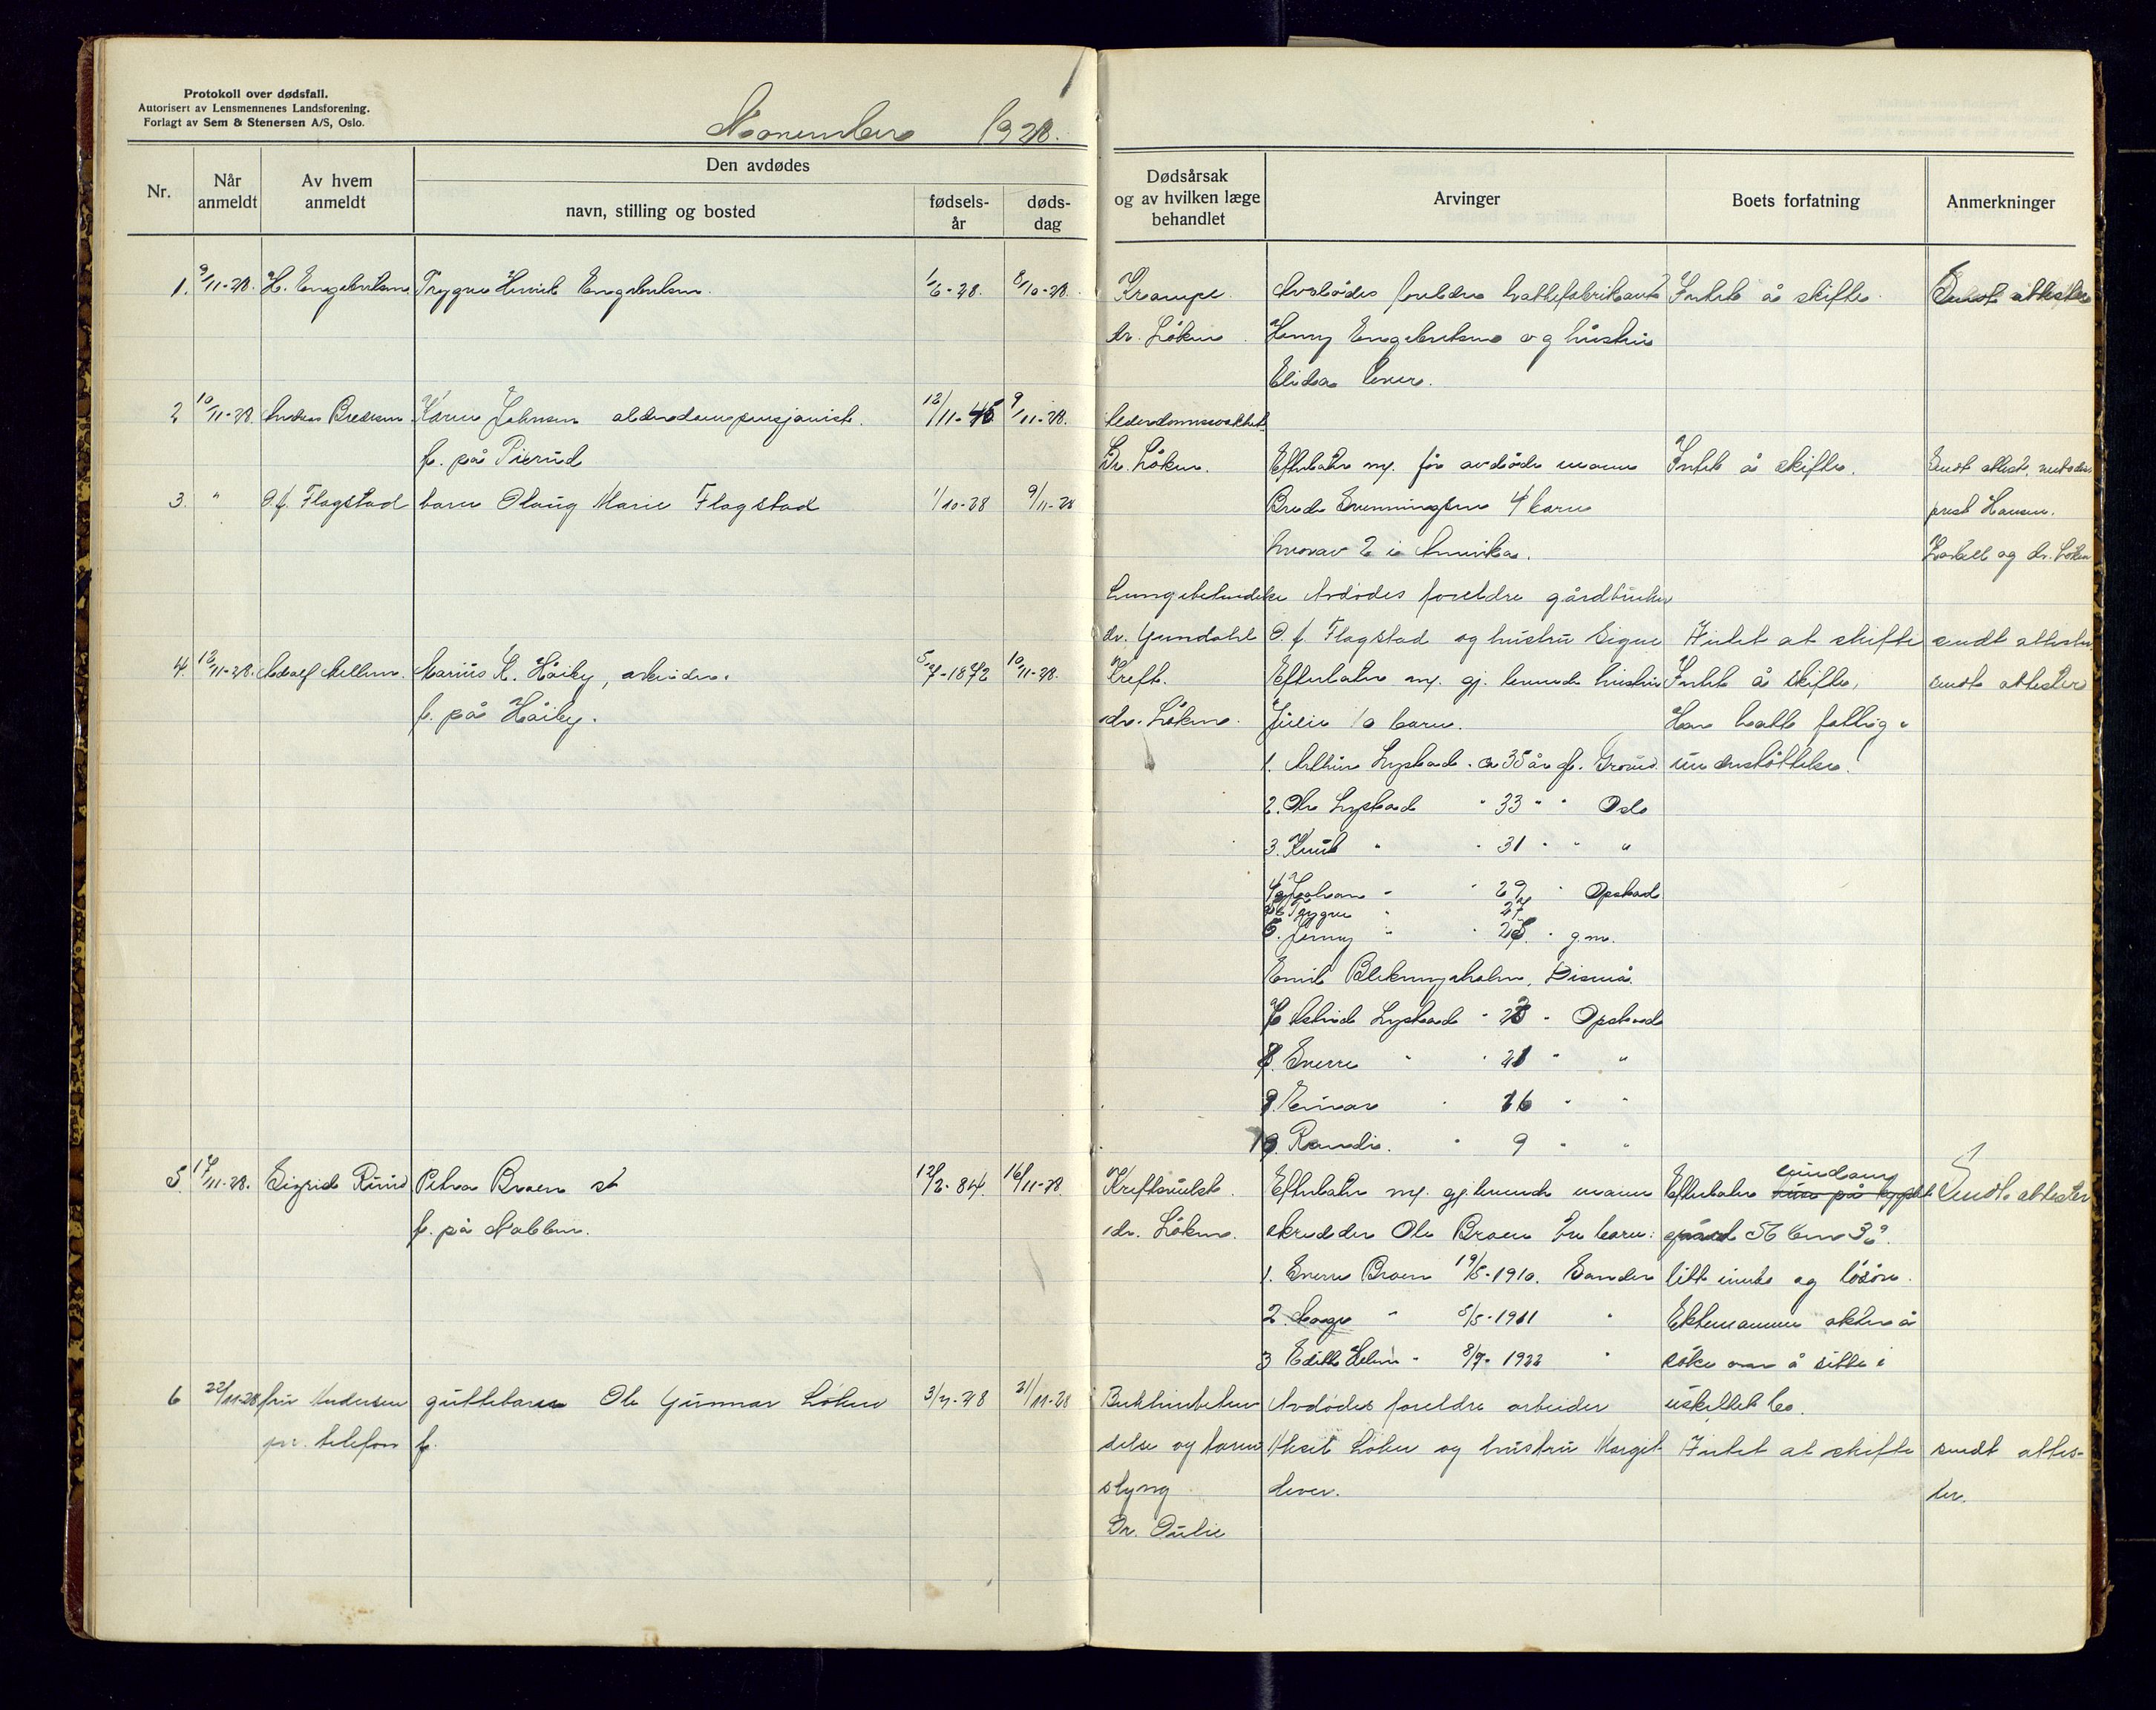 Protokoll over dødsfall.
Autorisert av Lensmennenes Landsforening.
Forlagt av Sem & Stenersen A/S, Oslo.
November 1928.
Nr.
Når anmeldt
Av hvem anmeldt
Den avdødes
navn, stilling og bosted
fødsels-år
døds-dag
Dødsårsak og av hvilken læge behandlet
Arvinger
Boets forfatning
Anmerkninger
1. 9/11-28. H. Engebretsen Trygve Henrik Engebretsen. 1/6-28. 8/10-28.
Krampe. Avdødes foreldre hattefabrikant Intet å skifte. Sendt attester
dr. Löken. Henny Engebretsen og hustru
Elida lever.
2 10/11-28. Andreas Bredesen Karen Johnsen alderdomspensjonist. 12/11-45 9/11-28.
f. på Pierud
Alderdomssvakhet
Dr. Löken. Efterlater sig før avdøde mann Intet å skifte. Sendt attest
Brede Svenningsen 4 barn prest Hansen.
hvorav 2 i Amerika. og dr. Löken
3. " O. f. Flagstad barn Olaug Marie Flagstad 1/10-28 9/11-28
Lungebetendelse Avdødes foreldre gårdbruker
dr. Gundahl O. f. Flagstad og hustru Signe Intet at skifte sendt attester
4. 12/11-28. Adolf Mellum. Marius K. Håiby, arbeider. 5/7-1872 10/11-28.
f. på Håiby.
Kreft. Efterlater sig gj. levende hustru Intet å skifte, sendt attester
dr. Löken. Julie 10 barn. Han hatt fattig-
1. Arthur Lystad. ca 35 år f. Grorud. understøttelse.
2. Ole Lystad " 33 " " Oslo
3. Knut " " 31 " " "
4. Johan " " 29 " Opstad
Trygve " 27
Jenny " " 25 " g.m.
Emil Blekungsholm, Disenå.
7 Astrid Lystad " 23 " Opstad
8. Sverre " " 21 " "
9. Einar " 16 " "
10. Randi. " 9 " "
5. 17/11-28. Sigrid Ruud Petra Braen st 12/2-84. 16/11-28.
f. på Nabben.
Kreftsvulst. Efterlater sig gjlevende mann Efterlater eiendom Sendt attester
dr. Löken. skredder Ole Braen tre barn: gård 56 bno 3?
1. Sverre Braen 19/5-1910. Sander litt innbo og løsøre.
2. Aage " 5/5-1911 " Ektemannen akter å
3 Edith Helene " 8/7-1922 " søke om å sitte i
uskiftet bo.
6 22/11-28 fru Andersen guttebarn Ole Gunnar Løken 3/7-28 21/11-28
pr. telefon f.
Bukhindebeten- Avdødes foreldre arbeider
delse og tarm- Aksel Løken og hustru Margit Intet at skifte sendt attes-
slyng lever. ter.
Dr. Dulie